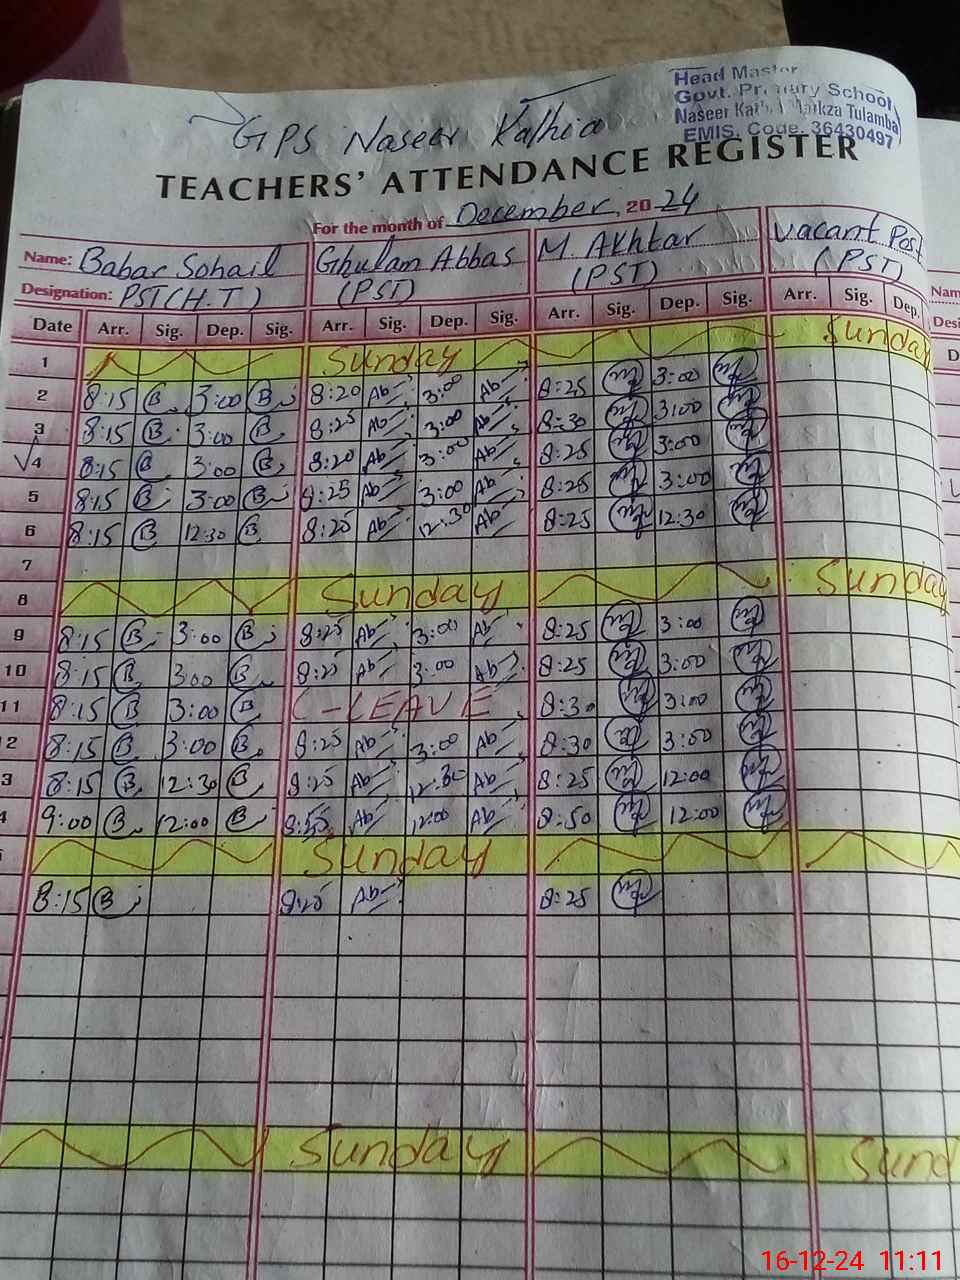 Head Master
Govt. Primary School
Naseer Kath Markza Tulamba
EMIS. Code. 36430497
GPS Naseer Kathia
TEACHERS' ATTENDANCE REGISTER
For the month of December, 2024
Name: Babar Sohail Ghulam Abbas M. Akhtar Vacant Post
Designation: PST (H.T) (PST) (PST) (PST)
Date Arr. Sig. Dep. Sig. Arr. Sig. Dep. Sig. Arr. Sig. Dep. Sig. Arr. Sig. Dep.
1 Sunday Sunday
2 8:15 B 3:00 B 8:20 Ab 3:00 Ab 8:25 3:00
3 8:15 B 3:00 B 8:25 Ab 3:00 Ab 8:30 3:00
4 8:15 B 3:00 B 8:20 Ab 3:00 Ab 8:25 3:00
5 8:15 B 3:00 B 8:25 Ab 3:00 Ab 8:25 3:00
6 8:15 B 12:30 B 8:25 Ab 12:30 Ab 8:25 12:30
7
8 Sunday Sunday
9 8:15 B 3:00 B 8:25 Ab 3:00 Ab 8:25 3:00
10 8:15 B 3:00 B 8:25 Ab 3:00 Ab 8:25 3:00
11 8:15 B 3:00 B C-LEAVE 8:30 3:00
2 8:15 B 3:00 B 8:25 Ab 3:00 Ab 8:30 3:00
3 8:15 B 12:30 B 8:25 Ab 12:30 Ab 8:25 12:00
4 9:00 B 12:00 B 8:55 Ab 12:00 Ab 8:50 12:00
Sunday
8:15 B 8:25 Ab 8:25
Sunday Sund
16-12-24 11:11